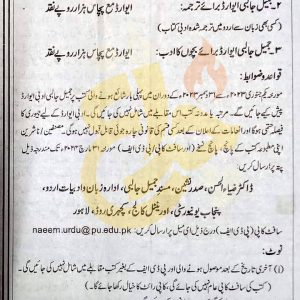 ۲۔جمیل جالبی ایوارڈ برائے ترجمہ: ایوارڈ مع پچاس ہزار روپے نقد
(کسی بھی زبان سے اردو میں ترجمہ شدہ ادبی کتاب)
۳۔جمیل جالبی ایوارڈ برائے بچوں کا ادب: ایوارڈ مع پچاس ہزار روپے نقد
قواعد و ضوابط:
مورخہ یکم جنوری ۲۰۲۳ء سے ۳۱ دسمبر ۲۰۲۳ء کے دوران میں پہلی بار شائع ہونے والی کتب پر جمیل جالبی ادبی ایوارڈ
پیش کیے جائیں گے۔ مرتبہ یا مدونہ کتب اس مقابلے میں شامل نہیں کی جائیں گی۔ ادبی ایوارڈ کے لیے جیوری کا
فیصلہ حتمی ہوگا اور انعامات کے اعلان کے بعد کسی قسم کی قانونی چارہ جوئی قابل قبول نہیں ہوگی۔ مصنفین/ ناشرین
اپنی مطبوعہ کتب کے پانچ، پانچ نسخے (اور سافٹ کاپی/پی ڈی ایف) مورخہ ۳۱ مارچ ۲۰۲۴ء تک مندرجہ ذیل
پتہ پر ارسال کریں۔
ڈاکٹر ضیاء الحسن، صدر نشین، مسند جمیل جالبی، ادارہ زبان و ادبیات اردو،
پنجاب یونیورسٹی، اورینٹل کالج، کچہری روڈ، لاہور
سافٹ کاپی (پی ڈی ایف) درج ذیل ای میل پر ارسال کریں: naeem.urdu@pu.edu.pk
نوٹ:
(i) آخری تاریخ کے بعد موصول ہونے والی اور پی ڈی ایف کے بغیر کتب مقابلے میں شامل نہیں کی جائیں گی۔
کاپی رائٹ کا خیال رکھا جائے گا۔